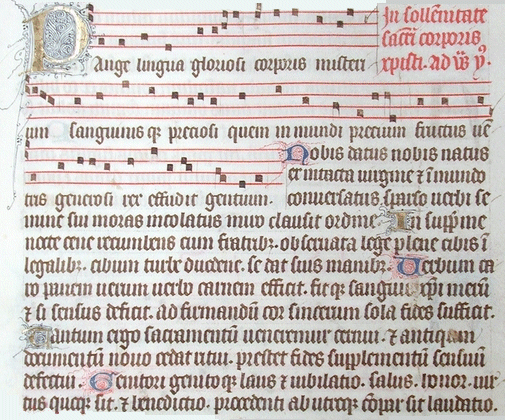 In sollenitate
sacri corporis
xpisti. ad vs ym.
Pange lingua gloriosi corporis misteri
um sanguinis qz preciosi quem in mundi precium fructus ue
Nobis datus nobis natus
ex intacta uirgine z i mundo
tris generosi rex effudit gentium. conuersatus sparso uerbi se
mine sui moras incolatus miro clausit ordine In suppreme
nocte cene recumbens cum fratribz. obseruata lege plene cibis i
legalibz. cibum turbe duodene. se dat suis manibz. Uerbum ca
ro panem uerum uerbo carnem efficit. fit qz sanguis xpi merū
z si sensus deficit. ad firmandū cor sincerum sola fides sufficit.
Tantum ergo sacramentū ueneremur cernui. z antiquum
documentū nouo cedat ritui. prestet fides supplementū sensuū
defectui. Genitori genito qz laus z iubilatio. salus. honor. uir
tus quoqz sit. z benedictio. procedenti ab utroqz compar sit laudatio.